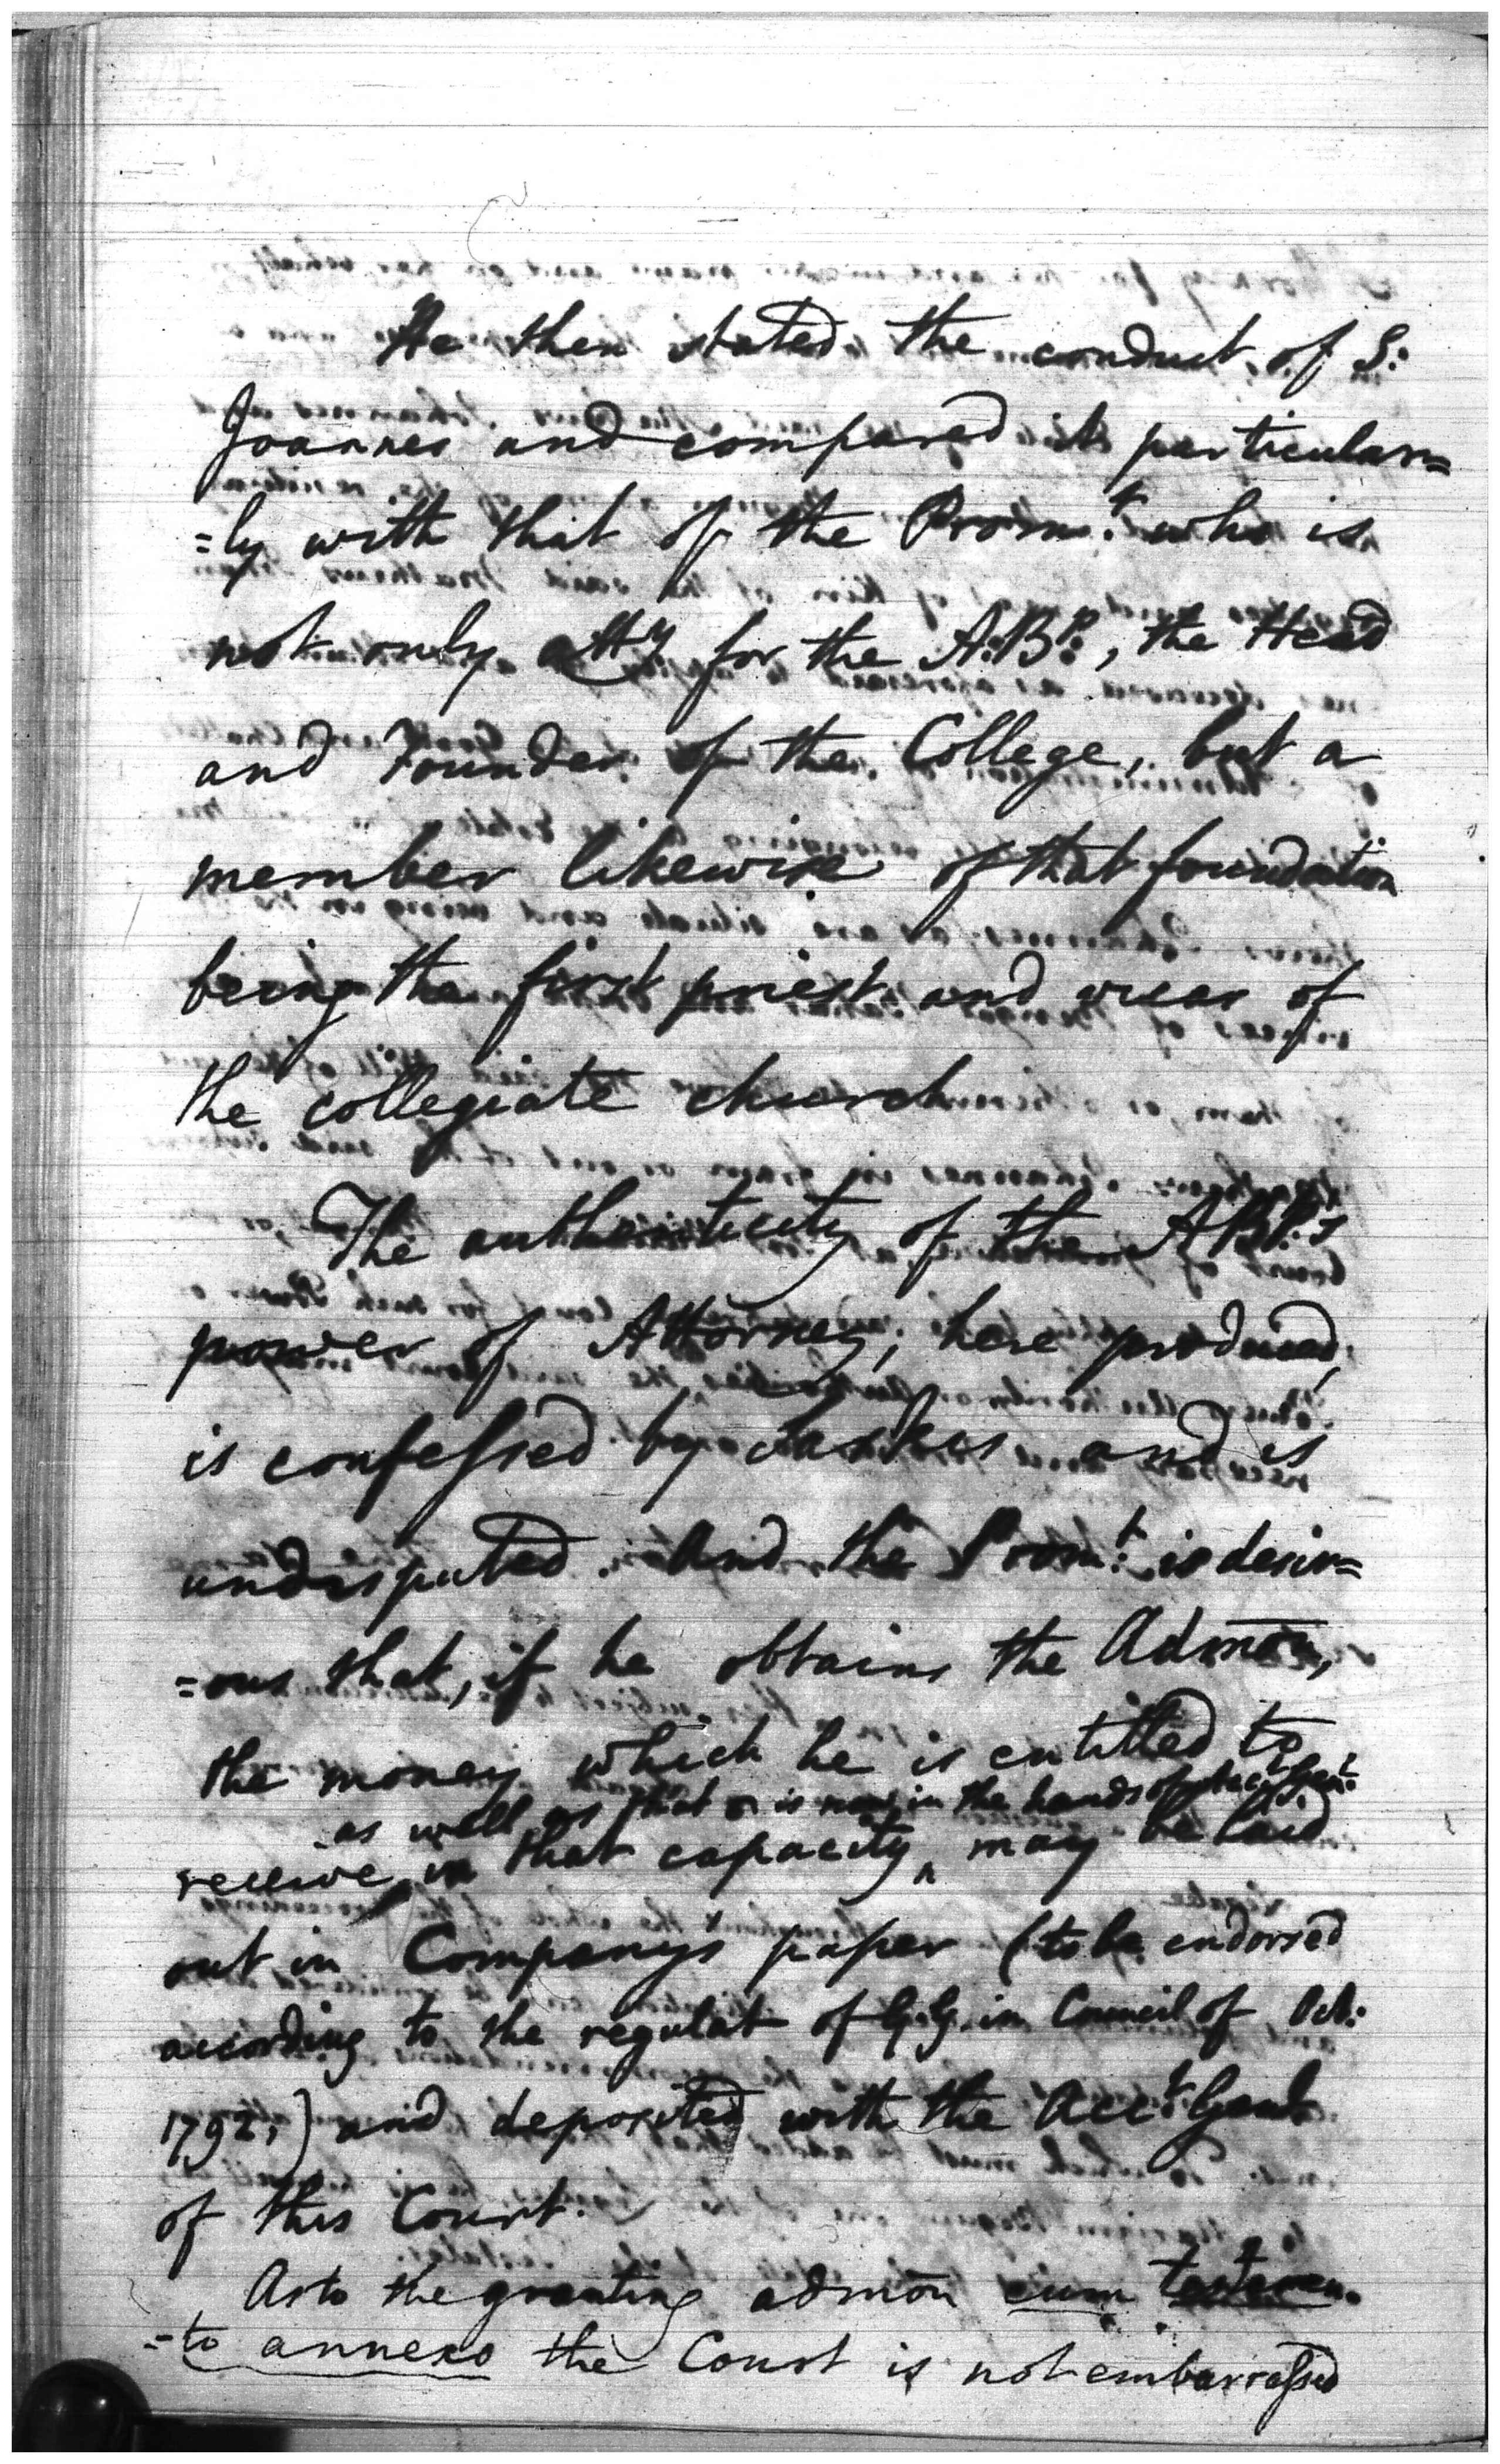 He then stated the conduct of S:
Joannes and compared it particular=
=ly with that of the Prom:t who is
not only atty for the A:Bp:, the Head
and Founder of the College, but a
member likewise of that foundation
being the first priest and vicar of
the collegiate church.
The authenticity of the ABP:s
power of Attorney, here produced,
is confessed by Sarkies and is
undisputed. And the Prom:t is desir=
=ous that, if he obtains the Admon,
the money which he is entitled to
as well as that is now in the hands of the
receive in that capacity ^ may be laid
out in Company's paper (to be endorsed
according to the regulat of G.G. in Council of Oct:
1792,) and deposited with the Acc:t Genl
of this Court.
As to the granting admon cum testamen=
=to annexo the Court is not embarrassed